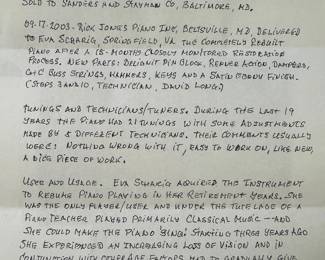 SOLD TO SANDERS AND STAYMAN CO, BALTIMORE, MD.
09.17.2003 - RICK JONES PIANO INC, BELTSVILLE, MD, DELIVERED
TO EVA SCHARIG, SPRINGFIELD, VA THE COMPLETELY REBUILT
PIANO AFTER A 18-MONTHS CLOSELY MONITORED RESTORATION
PROCESS. NEW PARTS: DELIGNIT PIN BLOCK, RENNER ACTION, DAMPERS,
GC BASS STRINGS, HAMMERS, KEYS AND A SATIN EBONY FINISH.
TECHNICIAN, DAVID LONG)
TUNINGS AND TECHNICIANS/TUNERS. DURING THE LAST 19
YEARS THE PIANO HAD 21 TUNINGS WITH SOME ADJUSTMENTS
MADE BY 5 DIFFERENT TECHNICIANS. THEIR COMMENTS USUALLY
WERE: NOTHING WRONG WITH IT, EASY TO WORK ON, LIKE NEW,
A NICE PIECE OF WORK.
USER AND USAGE. EVA SCHARIG ACQUIRED THE INSTRUMENT
TO RESUME PIANO PLAYING IN HER RETIREMENT YEARS. SHE
WAS THE ONLY PLAYER/USER AND UNDER THE TUTELAGE OF A
PIANO TEACHER PLAYED PRIMARILY CLASSICAL MUSIC -- AND
SHE COULD MAKE THE PIANO 'SING'. STARTING THREE YEARS AGO
SHE EXPERIENCED AN INCREASING LOSS OF VISION AND IN
CONJUNCTION WITH FACTORS HAD TO GRADUALLY GIVE